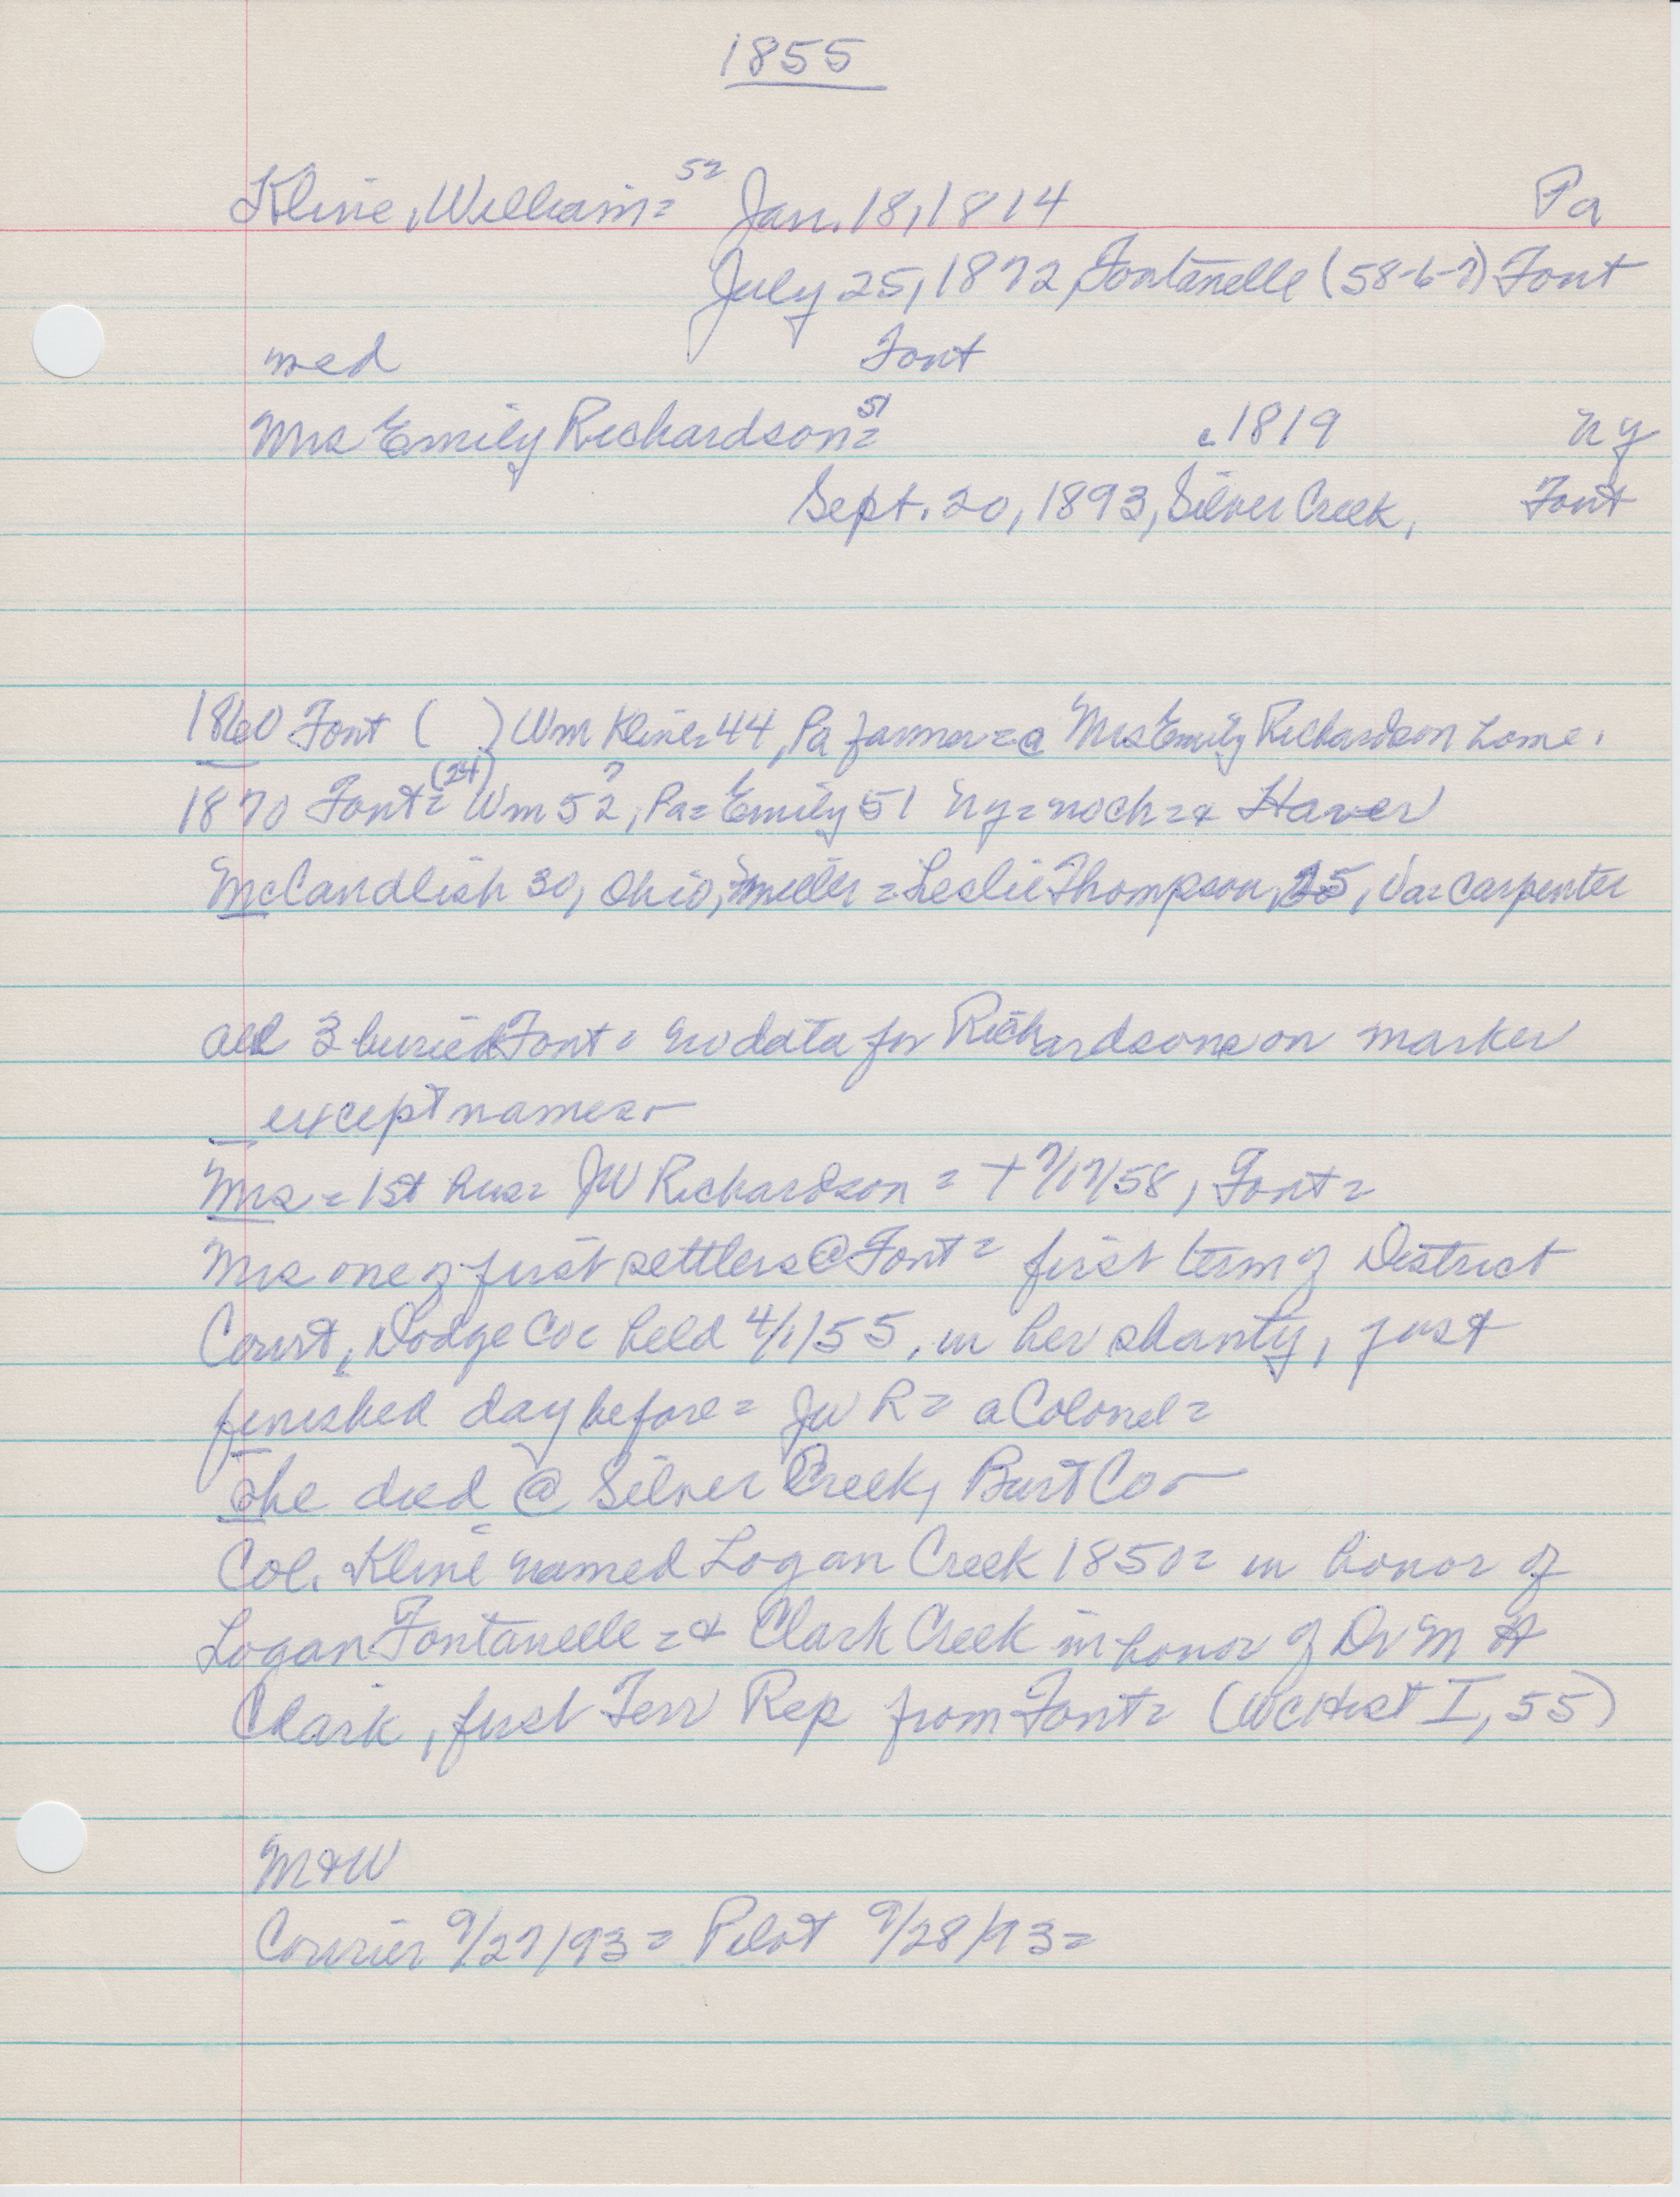 1855
Kline, William = 52 Jan. 18, 1814 Pa
July 25, 1872, Fontanelle (58-6-7) Font
med Font
Mrs Emily Richardson = 51 c1819 NY
Sept. 20, 1893, Silver Creek, Font
1860 Font ( ) Wm Kline = 44, Pa farmer = @ Mrs Emily Richardson home.
1870 Font = (24) Wm 52?, Pa = Emily 51 NY = no ch = &
McCandlish 30, Ohio, miller = Leslie Thompson, 25, Va = carpenter
all 3 buried Font = no data for Richardsons on marker
except names -
Mrs = 1st hus = JW Richardson = + 7/17/58, Font =
Mrs one of first settlers @ Font = first term of District
Court, Dodge Co = held 4/1/55, in her shanty, just
finished day before = JW R = a Colonel =
She died @ Silver Creek, Burt Co -
Col. Kline named Logan Creek 1850 = in honor of
Logan Fontanelle = & Clark Creek in honor of Dr M H
Clark, first Terr Rep from Font = (WCHist I, 55)
M & W
Courier 9/27/93 = Pilot 9/28/93 =